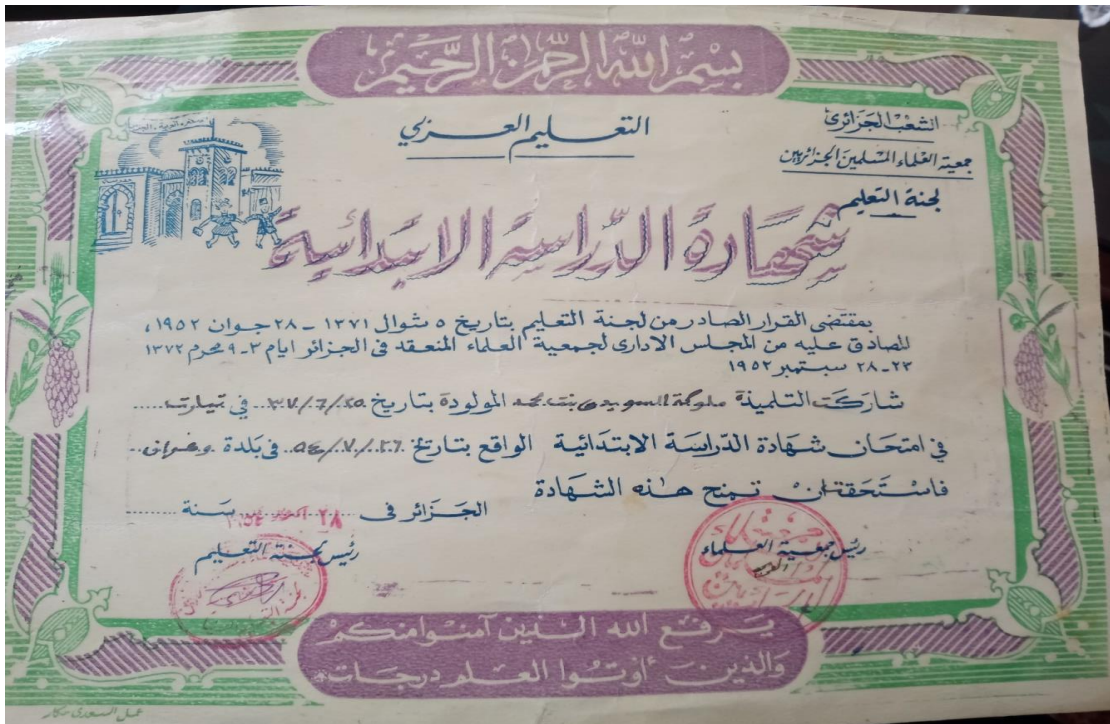 بسم الله الرحمن الرحيم
الشعب الجزائري
جمعية العلماء المسلمين الجزائريين
لجنة التعليم
التعليم العربي
شهادة الدراسة الابتدائية
بمقتضى القرار الصادر من لجنة التعليم بتاريخ ٥ شوال ١٣٧١ - ٢٨ جوان ١٩٥٢،
المصادق عليه من المجلس الاداري لجمعية العلماء المنعقد في الجزائر ايام ٣-٩ محرم ١٣٧٢
٢٣-٢٨ سبتمبر ١٩٥٢
شاركت التلميذة ملوكة السويدي بنت محمد المولودة بتاريخ ٢٥/٦/٣٧ في تيارت
في امتحان شهادة الدراسة الابتدائية الواقع بتاريخ ٢٦/٧/٥٤ في بلدة وهران
فاستحقت ان تمنح هذه الشهادة
الجزائر في ٢٨ اكتوبر سنة
رئيس جمعية العلماء
رئيس لجنة التعليم
يرفع الله الذين آمنوا منكم
والذين أوتوا العلم درجات
عمل السعدي حكار